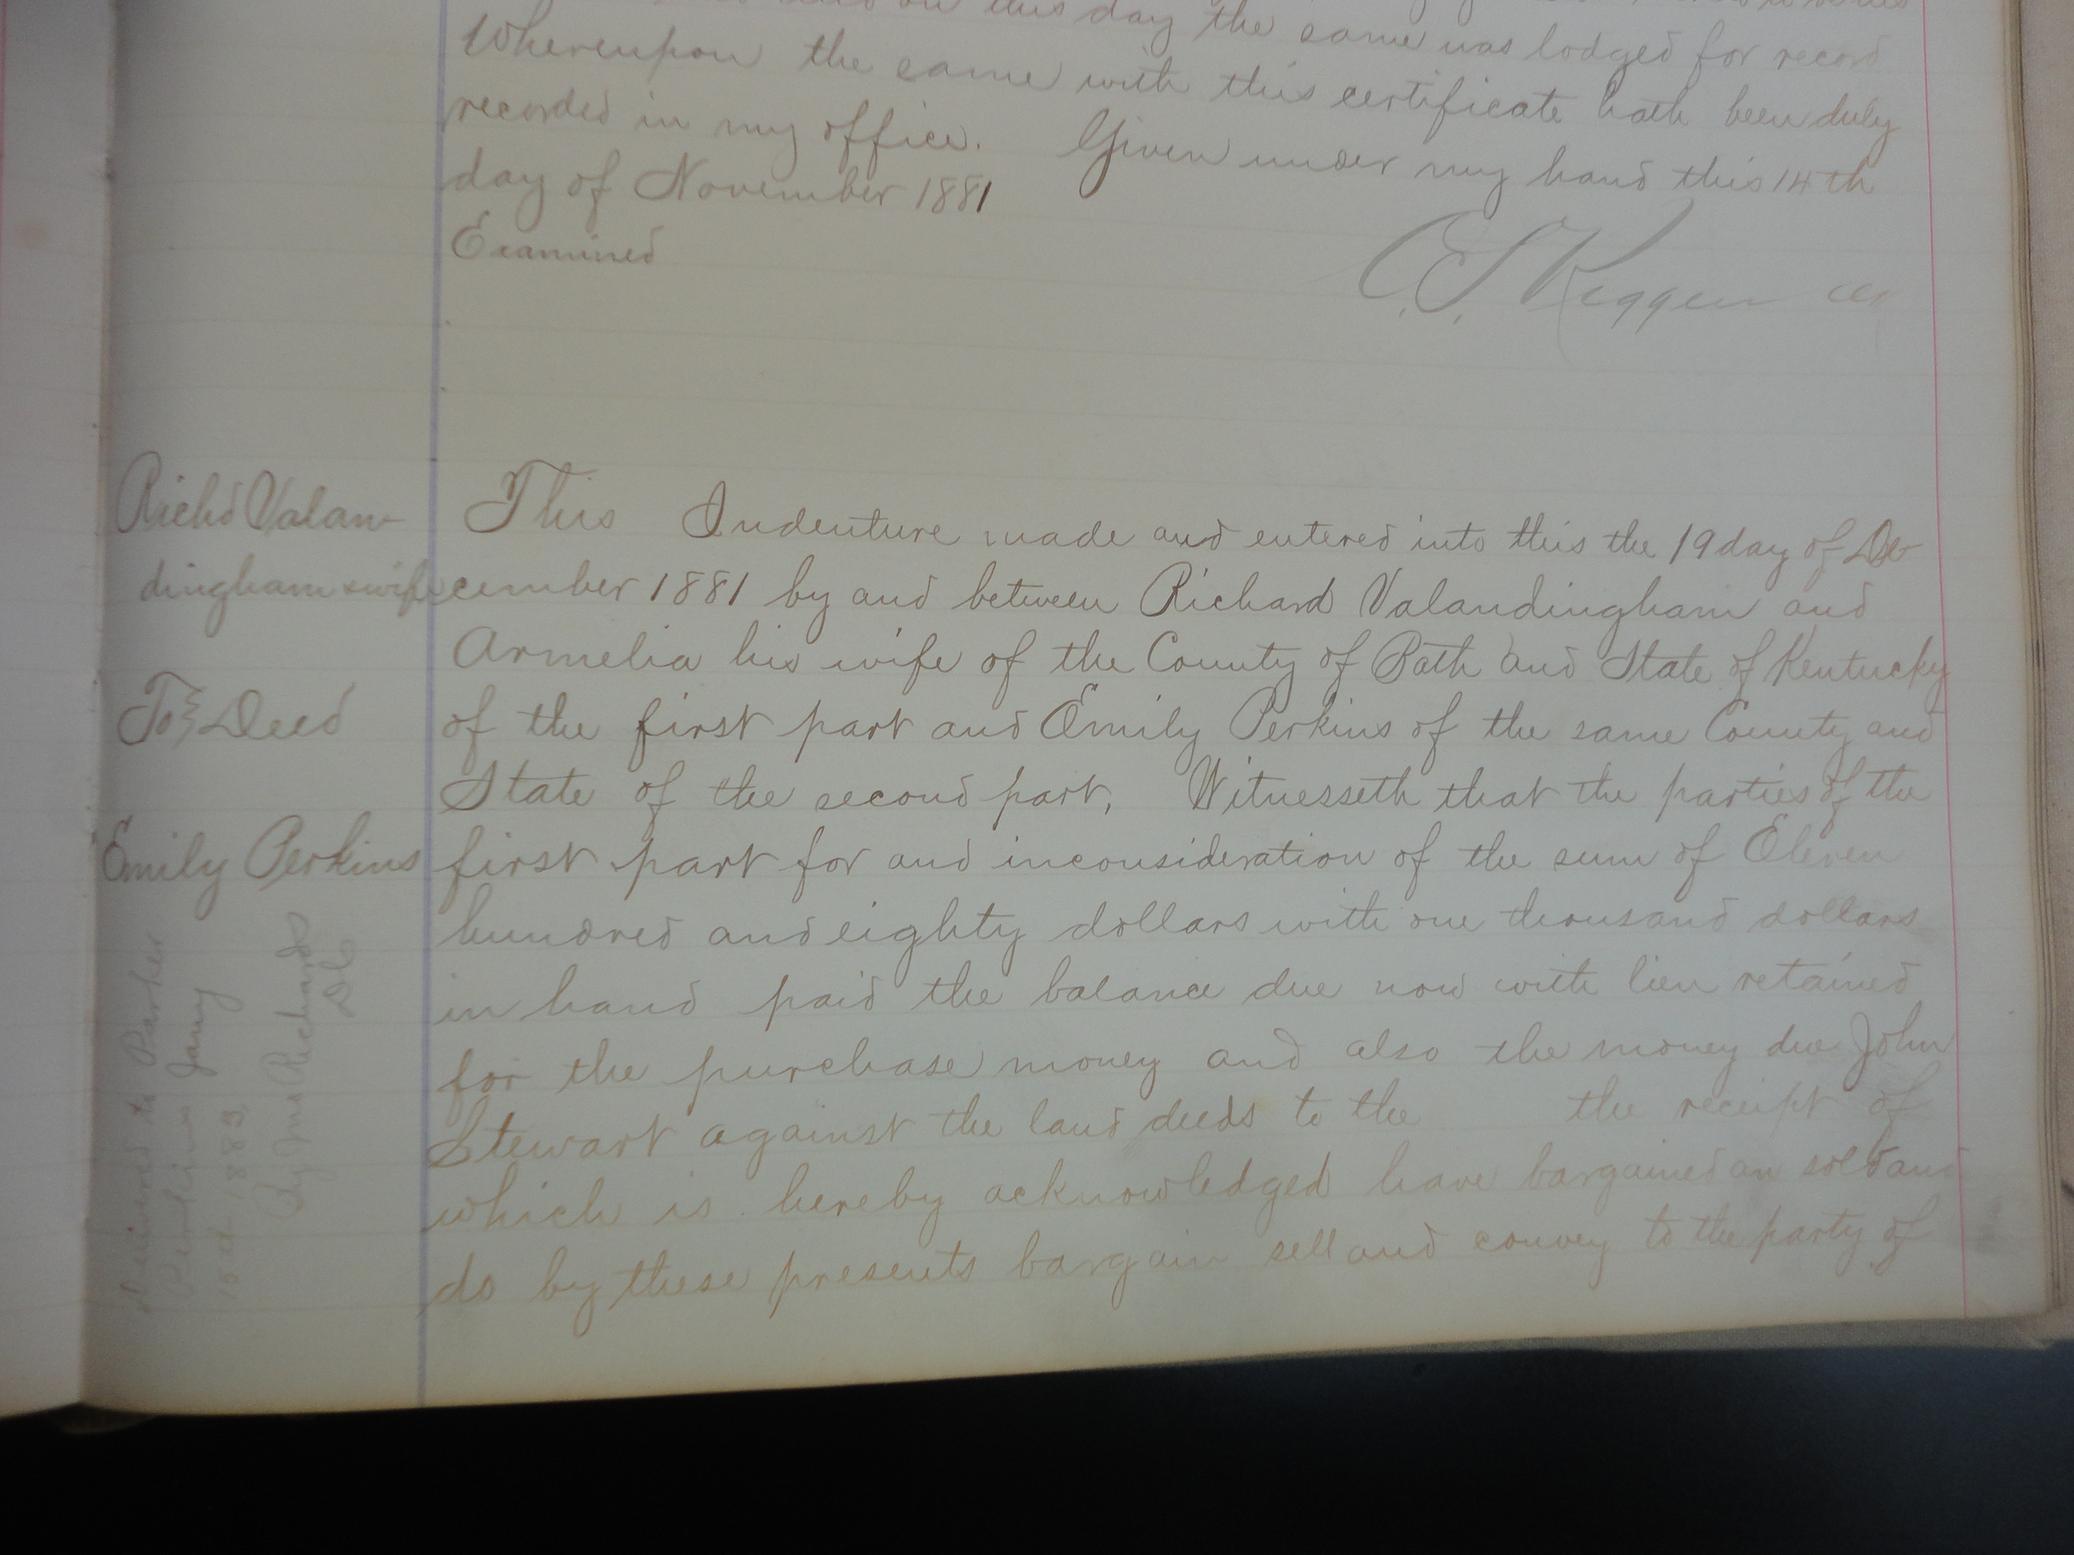 on this day the same was lodged for record
Whereupon the same with this certificate hath been duly
recorded in my office. Given under my hand this 14th
day of November 1881
Examined
Richd Valan-
dingham & wife
To } Deed
Emily Perkins
delivered to Parker
Perkins Jany
10th 1883,
By Jno Richards
DC
This Indenture made and entered into this the 19 day of De-
cember 1881 by and between Richard Valandingham and
Armelia his wife of the County of Bath and State of Kentucky
of the first part and Emily Perkins of the same County and
State of the second part, Witnesseth that the parties of the
first part for and inconsideration of the sum of Eleven
hundred and eighty dollars with one thousand dollars
in hand paid the balance due now with lien retained
for the purchase money and also the money due John
Stewart against the land deeds to the the receipt of
which is hereby acknowledged have bargained an sold and
do by these presents bargain sell and convey to the party of